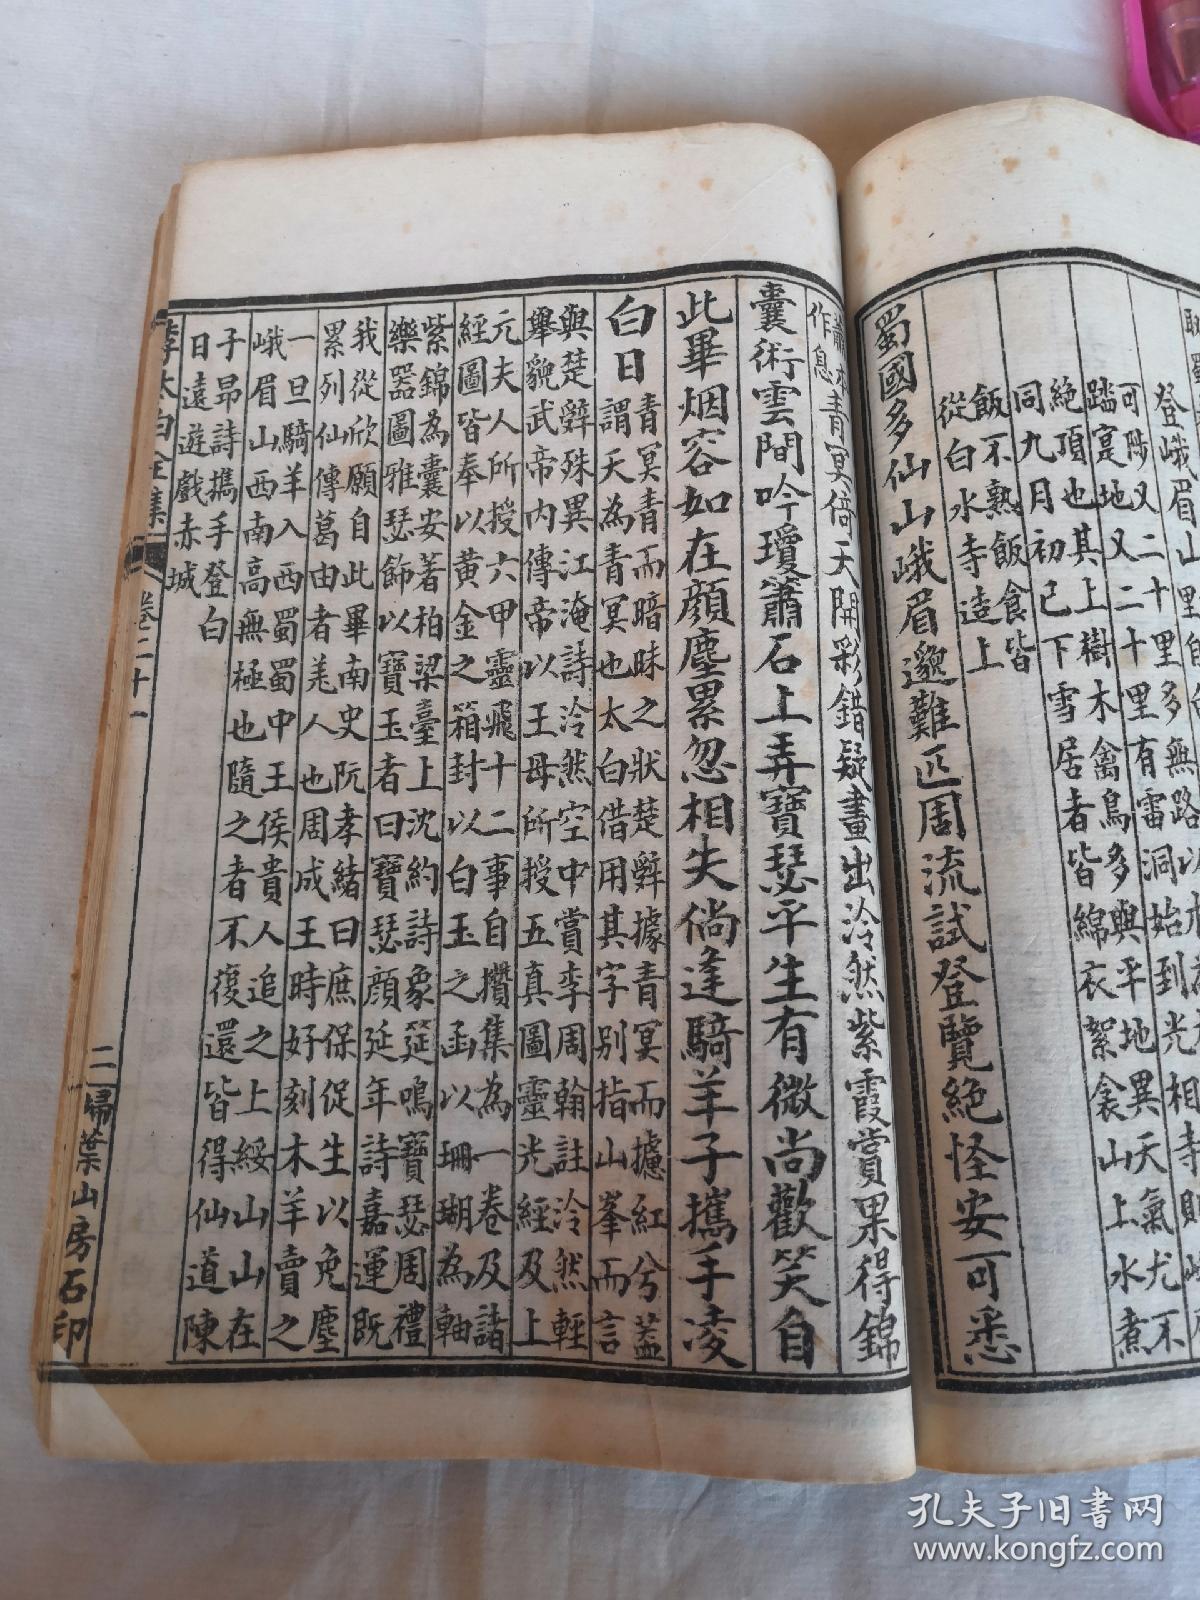 登峨眉山里自
可陟又二十里多無路以木
踏寔地又二十里有雷洞始到光相寺則
絶頂也其上樹木禽鳥多與平地異天氣尤不
同九月初已下雪居者皆綿衣絮衾山上水煮
飯不熟飯食皆
從白水寺造上
蜀國多仙山峨眉邈難匹周流試登覽絶怪安可悉
蕭本
作息
青冥倚天開彩錯疑畫出泠然紫霞賞果得錦
囊術雲間吟瓊簫石上弄寶瑟平生有微尚歡笑自
此畢烟容如在顔塵累忽相失倘逢騎羊子攜手凌
白日
青冥青而暗昧之狀楚辭據青冥而攄紅兮葢
謂天為青冥也太白借用其字别指山峯而言
與楚辭殊異江淹詩泠然空中賞李周翰註泠然輕
舉貌武帝内傳帝以王母所授五真圖靈光經及上
元夫人所授六甲靈飛十二事自攢集為一卷及諸
經圖皆奉以黄金之箱封以白玉之函以珊瑚為軸
紫錦為囊安著柏梁臺上沈約詩象筵鳴寶瑟周禮
樂器圖雅瑟飾以寶玉者曰寶瑟顔延年詩嘉運既
我從欣願自此畢南史阮孝緒曰庶保促生以免塵
累列仙傳葛由者羌人也周成王時好刻木羊賣之
一旦騎羊入西蜀蜀中王侯貴人追之上綏山山在
峨眉山西南高無極也隨之者不復還皆得仙道陳
子昂詩攜手登白
日遠遊戲赤城
李太白全集 卷二十一 二 掃葉山房石印
孔夫子旧书网
www.kongfz.com